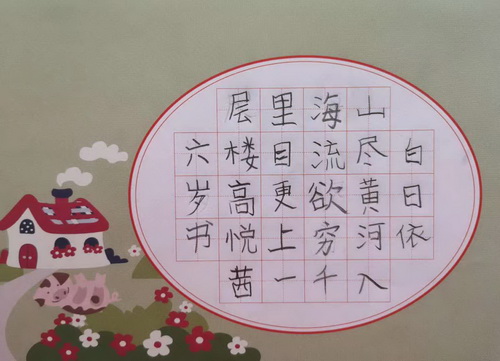 白日依
山尽黄河入
海流欲穷千
里目更上一
层楼高悦茜
六岁书